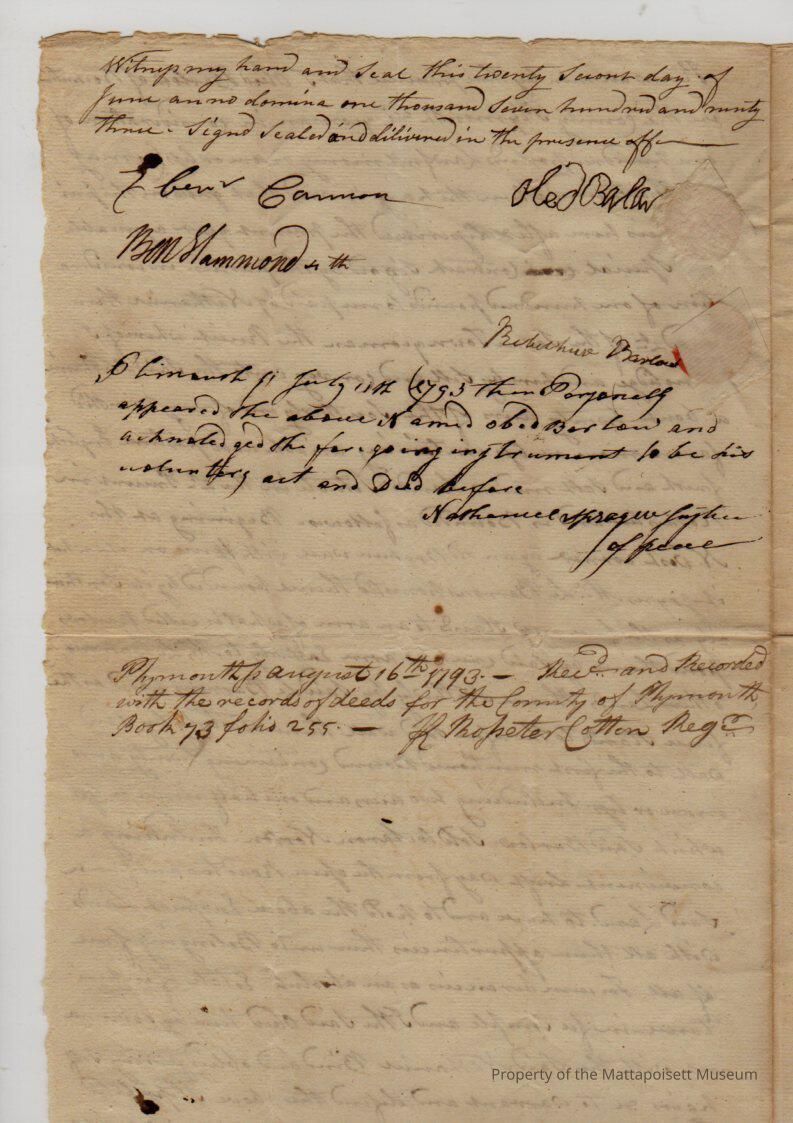 Witness my hand and seal this twenty second day of
June anno domina one thousand seven hundred and ninty
three - Signd sealed and dilivered in the presence off
Ebenr Cannon
Obed Barlow
Ben Hammond 4th
Barlow
Plimouth ss July 11th 1793 then Personely
appeared the above Named obed Barlow and
acknoledged the foregoing instrument to be his
voluntary act and Deed before
Nathaniel Sprague Justice
of peace
Plymouth ss august 16th 1793. — Recd. and Recorded
with the records of deeds for the County of Plymouth
Book 73 folio 255. — Rosseter Cotton Regr
Property of the Mattapoisett Museum